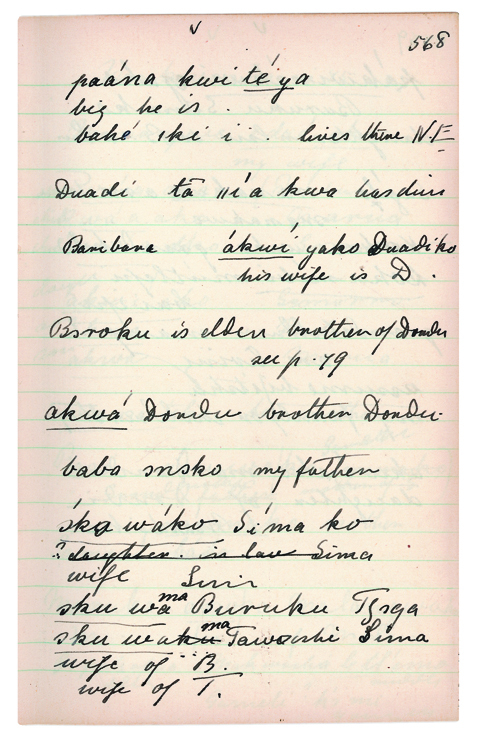 568
paána kwi téya
big he is.
bahé ski i.. lives there N.E
Duadi tā ||í a kwa basdin
Baribara ákwí yako Duadiko
his wife is D.
Bsroku is elder brother of Dondu
see p. 79
akwá Dondu brother Dondu.
baba snsko my father
ska wáko Síma ko
? daughter in law Sima
wife
sku wa ma Buruku
sku waku ma Sima
wife of B.
wife of T.